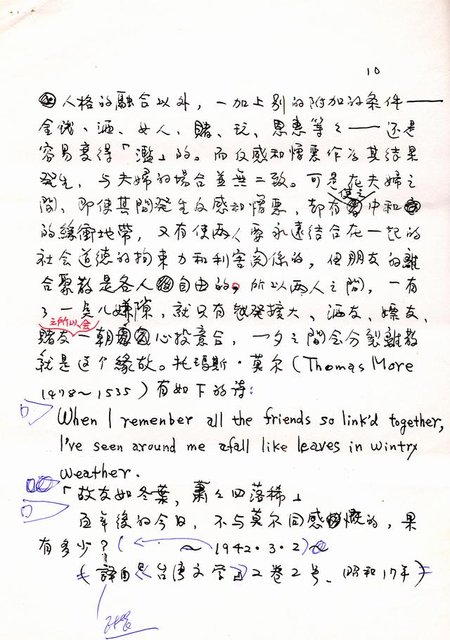 10
人格的融合以外，一加上別的附加的条件——
金錢、酒、女人、賭、玩、恩惠等々——还是
容易变得「濫」的。而反感和憎悪作為其結果
発生，与夫婦的場合並無二致。可是在夫婦之
間，即使其間発生反感和憎悪，都有使之中和
的緩衝地帶，又有使两人要永遠结合在一起的
社会道德的拘束力和利害関係的，但朋友的離
合聚散是各人自由的。所以两人之間，一有
了一点儿嫌隙，就只有擴大、酒友、嫖友、
賭友一朝心投意合，一夕之間会分裂離散
之所以会
就是这个緣故。托瑪斯·莫尔（Thomas More
1478～1535）有如下的诗：
When I remenber all the friends so link'd together,
I've seen around me afall like leaves in wintry
weather.
「故友如冬葉，蕭々四落稀」
百年後的今日，不与莫尔同感慨的，果
有多少？（～1942·3·2）
（譯自台湾文学2卷2号、昭和17年）